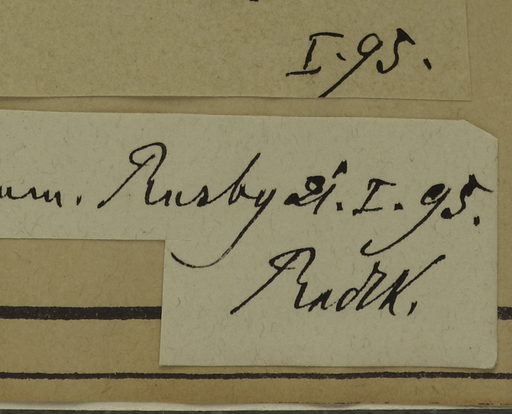 I. 95.
um. Rusby 21. I. 95.
Radlk.